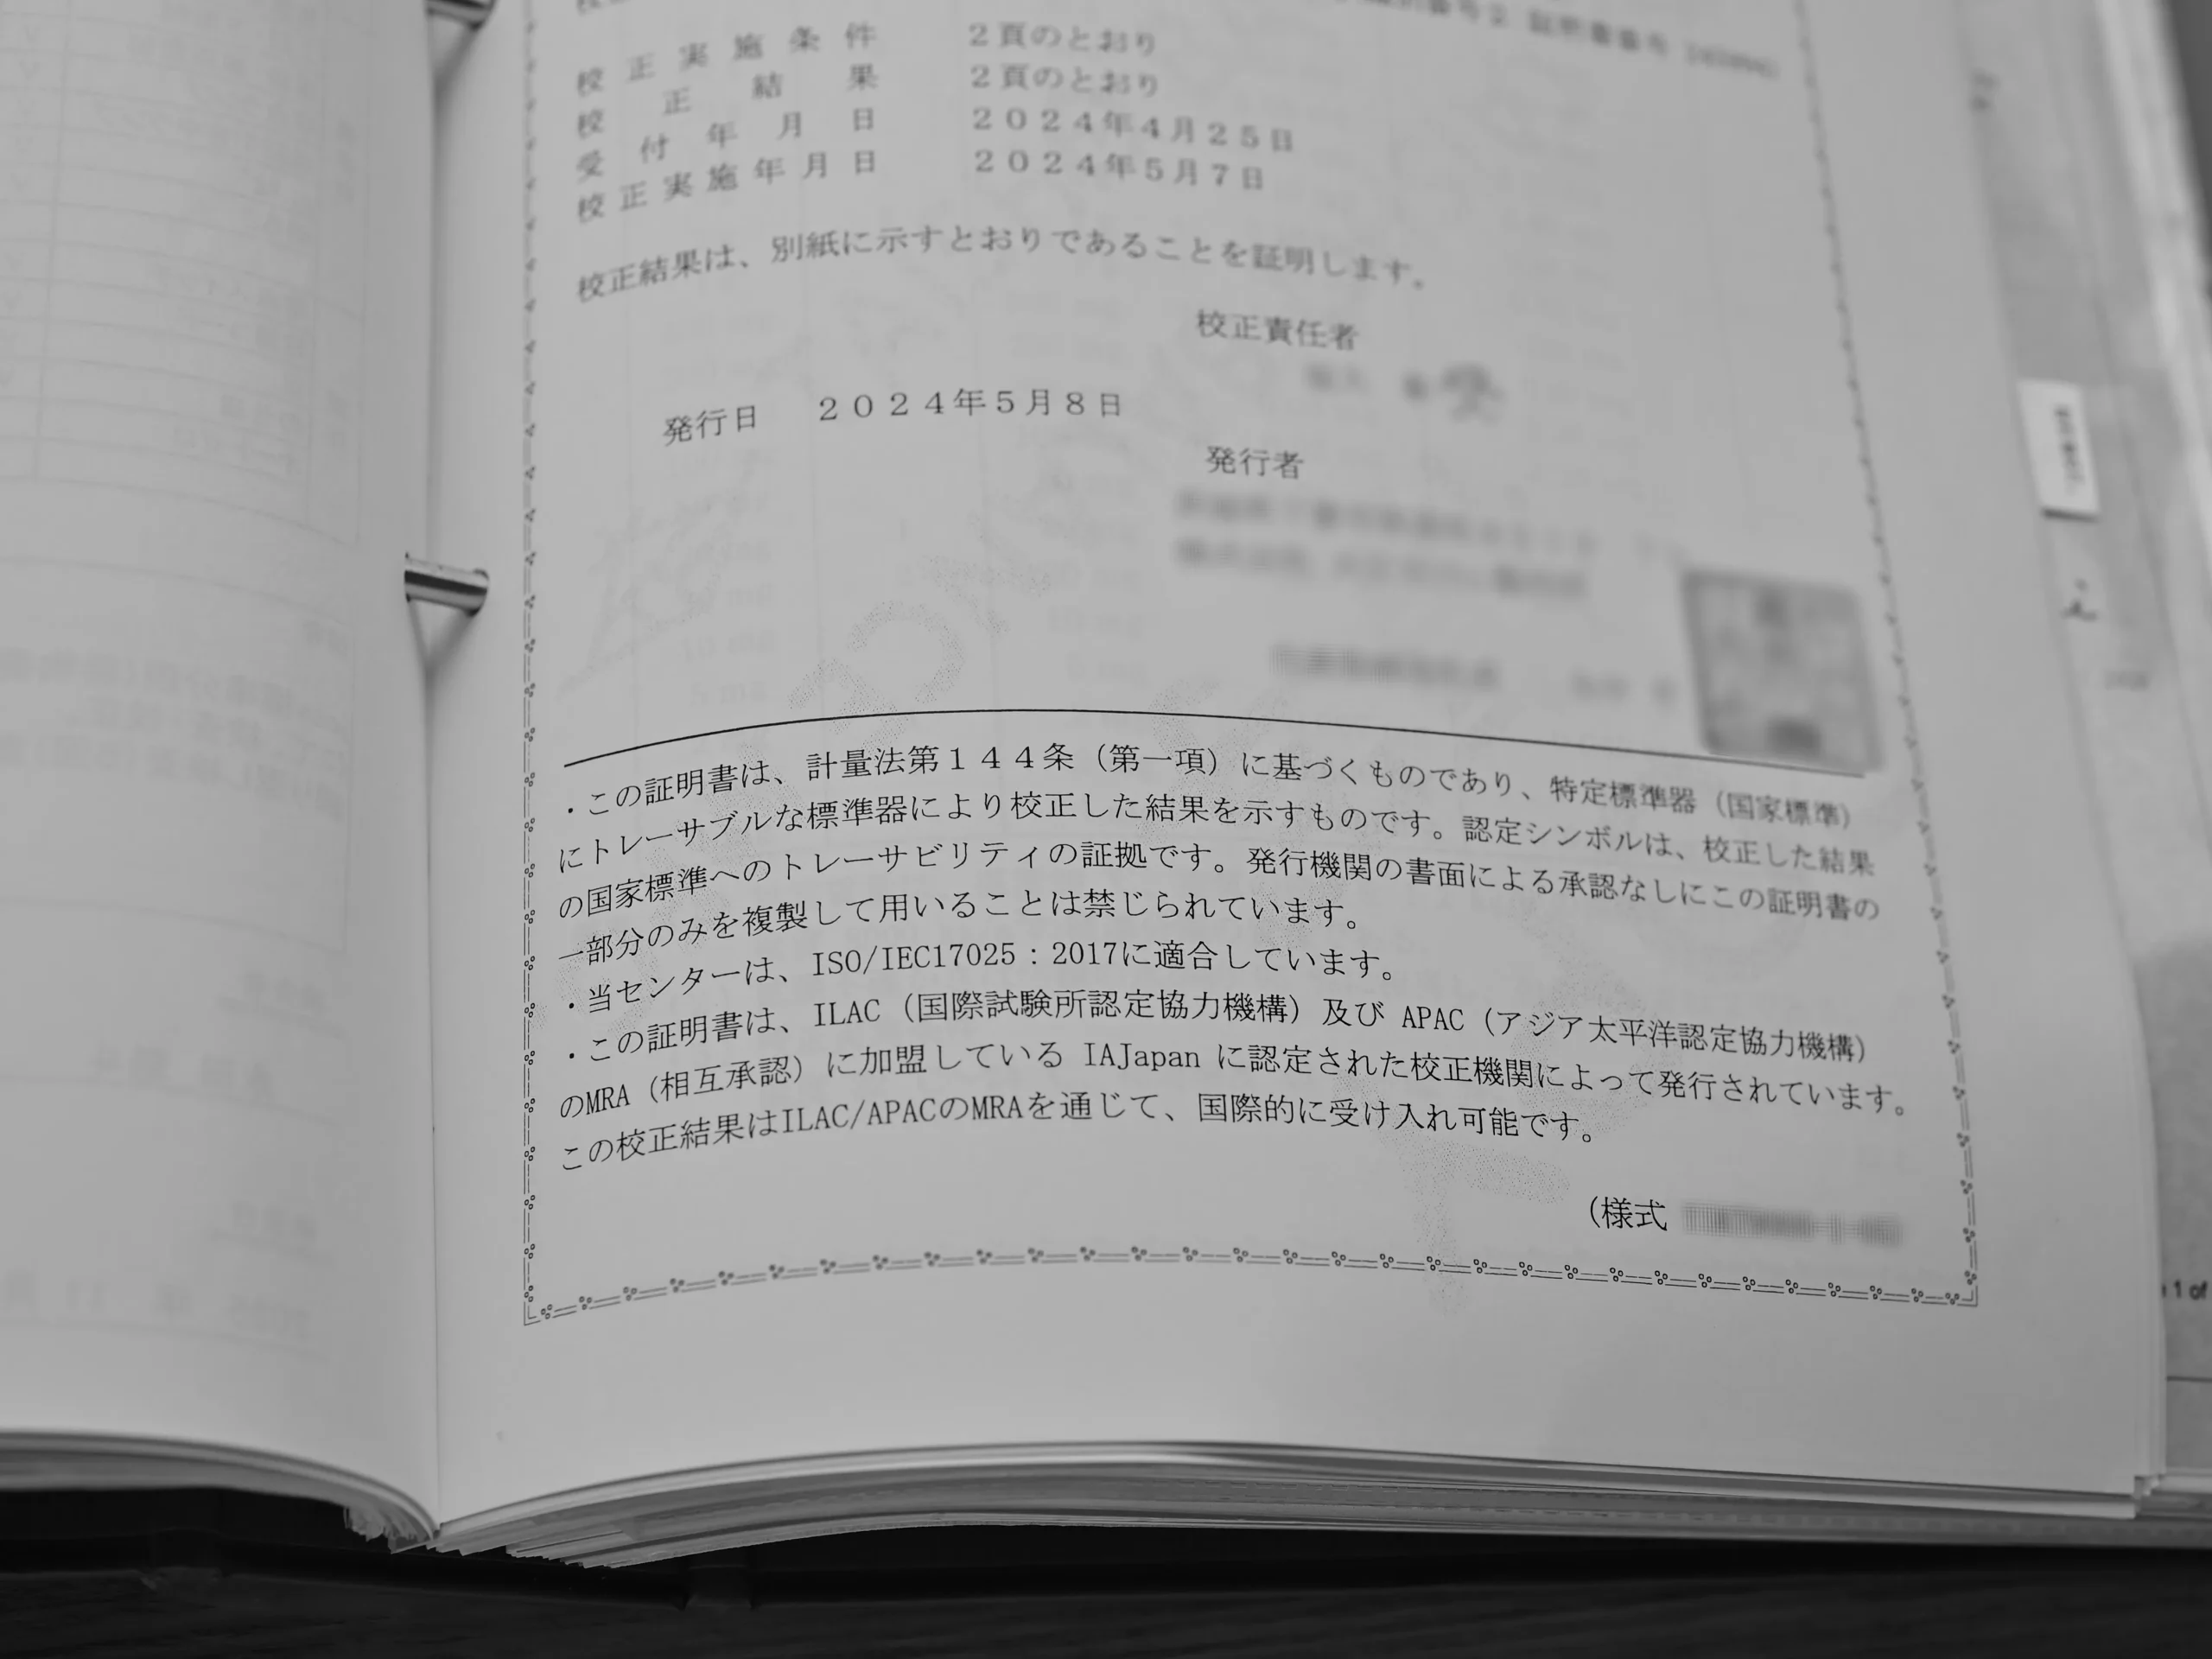 校正実施条件 2頁のとおり
校正結果 2頁のとおり
受付年月日 2024年4月25日
校正実施年月日 2024年5月7日
校正結果は、別紙に示すとおりであることを証明します。
校正責任者
発行日 2024年5月8日
発行者
・この証明書は、計量法第144条（第一項）に基づくものであり、特定標準器（国家標準）
にトレーサブルな標準器により校正した結果を示すものです。認定シンボルは、校正した結果
の国家標準へのトレーサビリティの証拠です。発行機関の書面による承認なしにこの証明書の
一部分のみを複製して用いることは禁じられています。
・当センターは、ISO/IEC17025：2017に適合しています。
・この証明書は、ILAC（国際試験所認定協力機構）及び APAC（アジア太平洋認定協力機構）
のMRA（相互承認）に加盟している IAJapan に認定された校正機関によって発行されています。
この校正結果はILAC/APACのMRAを通じて、国際的に受け入れ可能です。
（様式
1 of